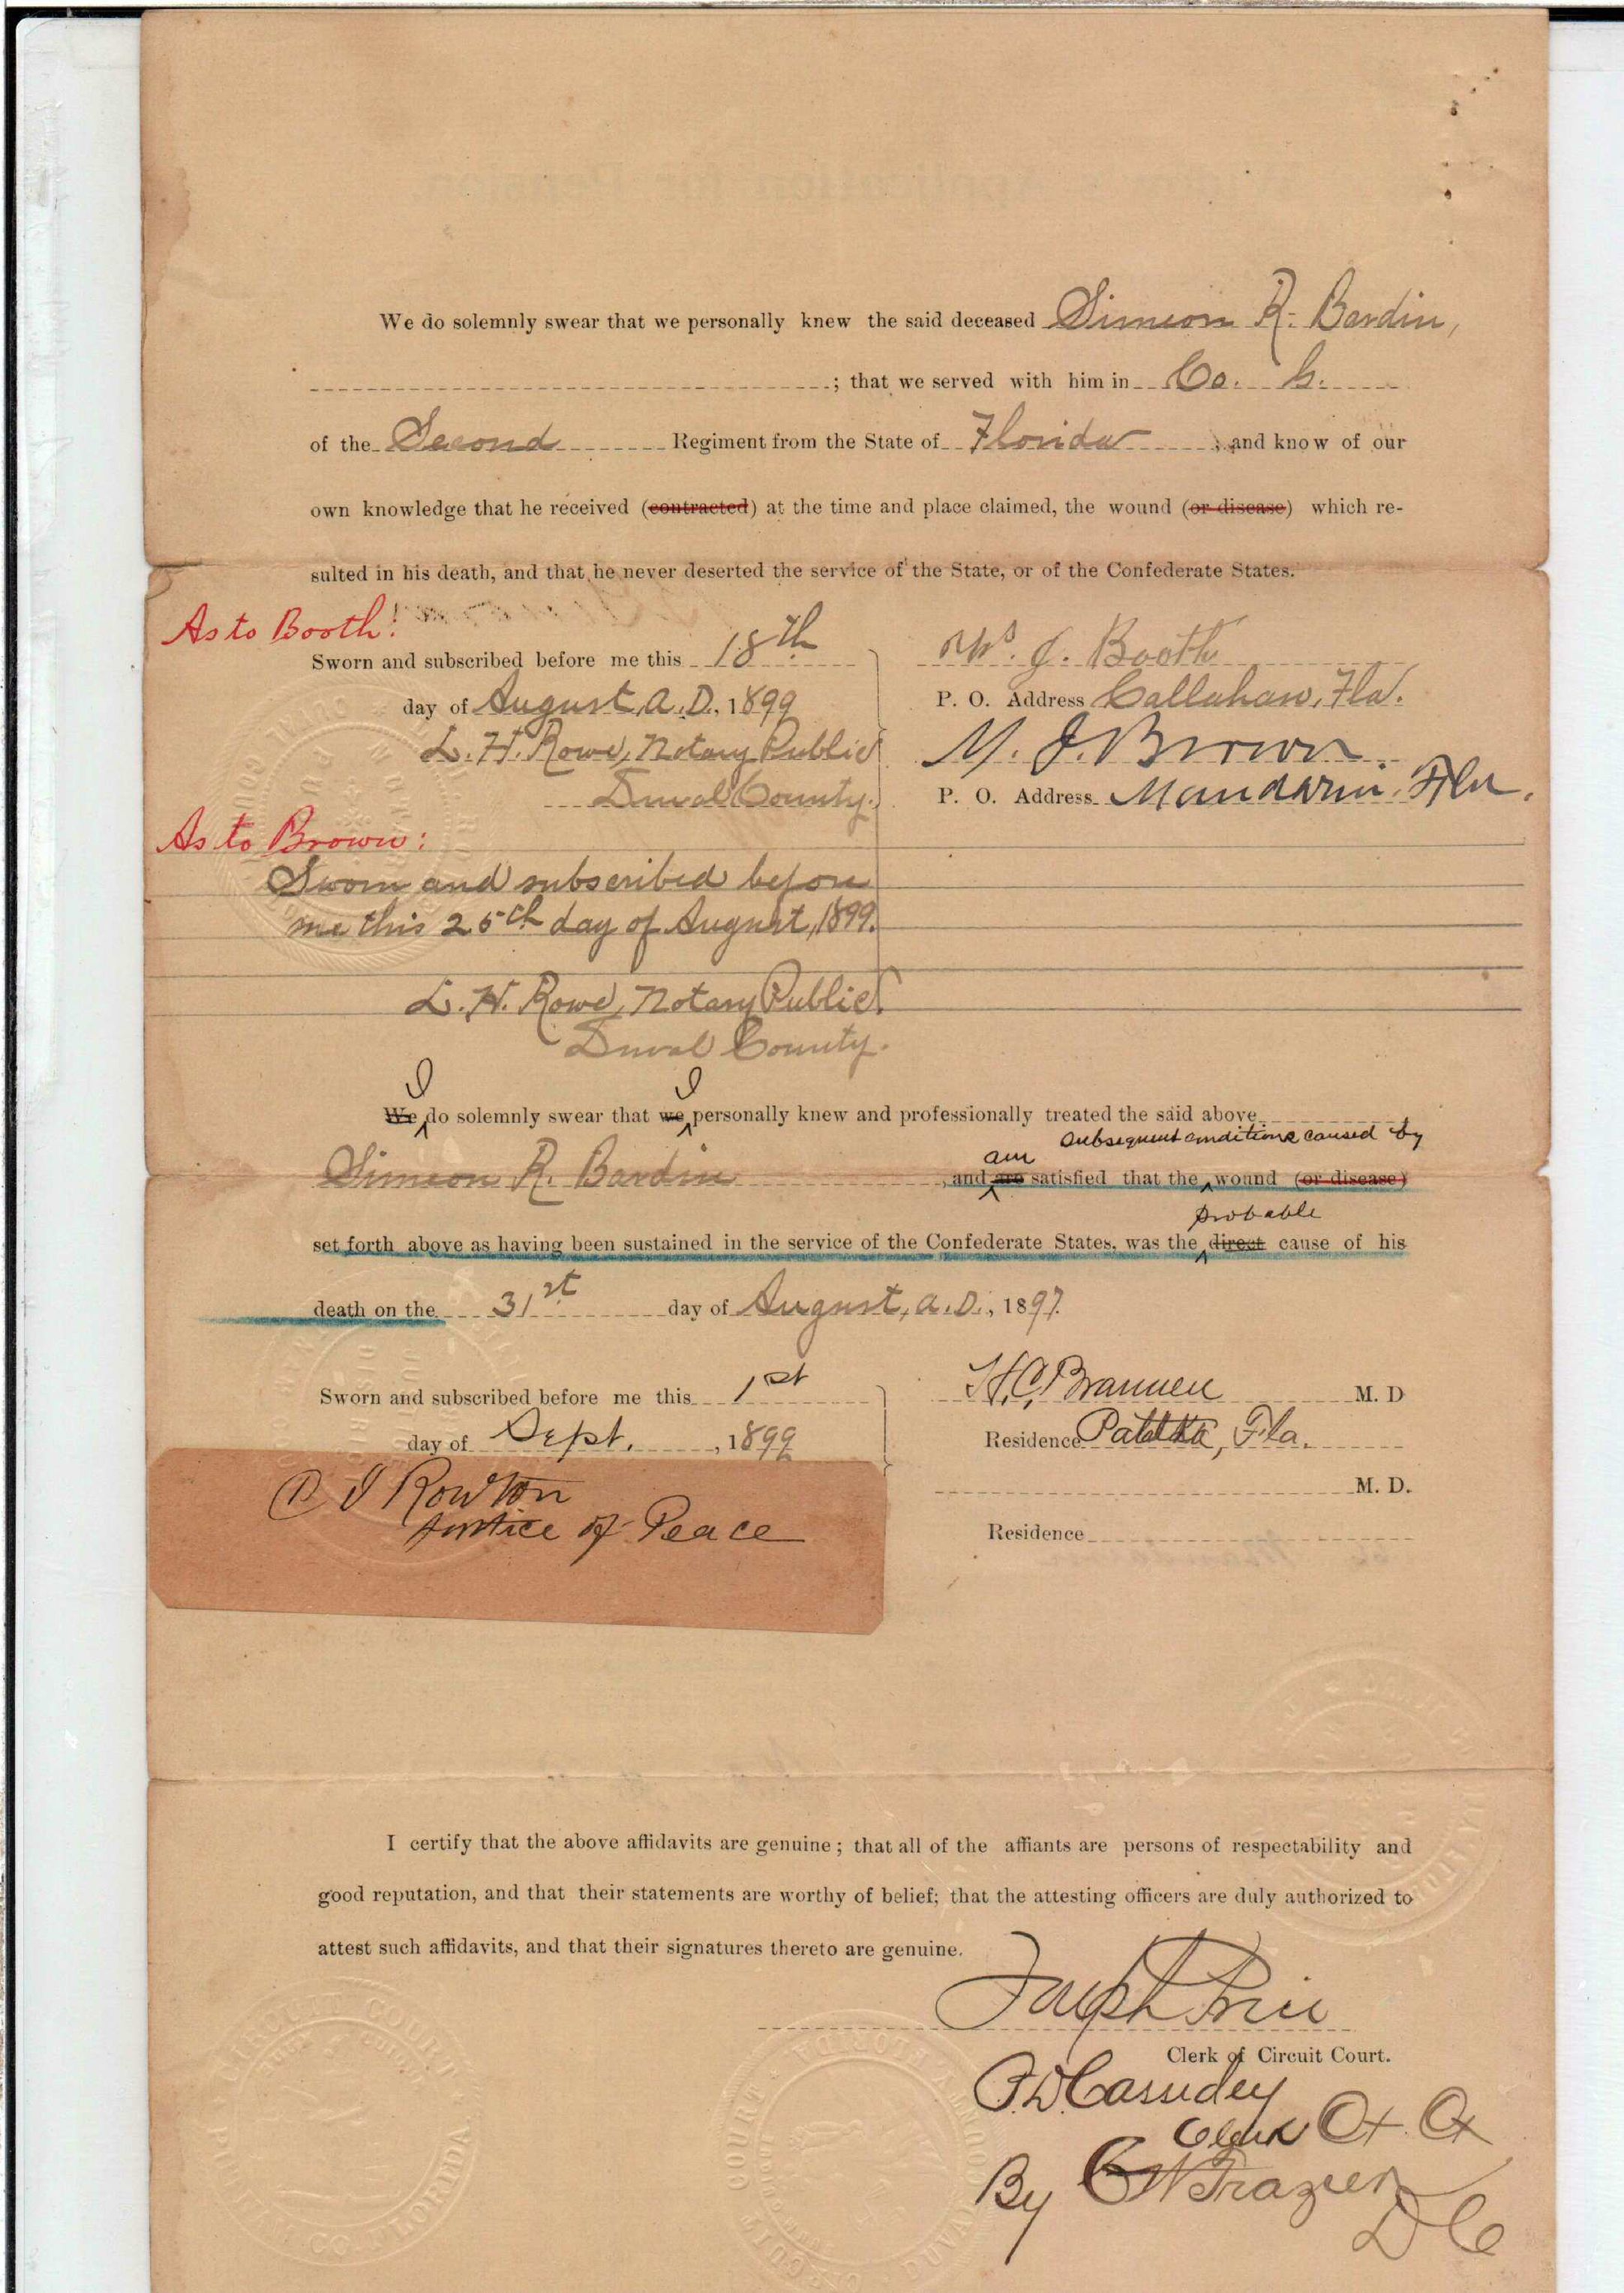 We do solemnly swear that we personally knew the said deceased Simeon R. Bardin,
; that we served with him in Co. G.
of the Second Regiment from the State of Florida ; and know of our
own knowledge that he received (contracted) at the time and place claimed, the wound (or disease) which re-
sulted in his death, and that he never deserted the service of the State, or of the Confederate States.
As to Booth:
Sworn and subscribed before me this 18th
day of August, A.D., 1899
L. H. Rowe, Notary Public
Duval County.
J. Booth
P. O. Address Callahan, Fla.
M. J. Brown
P. O. Address Mandarin, Fla.
As to Brown:
Sworn and subscribed before
me this 25th day of August, 1899.
L. H. Rowe, Notary Public.
Duval County.
I I
We do solemnly swear that we personally knew and professionally treated the said above
subsequent conditions caused by
am
Simeon R. Bardin , and are satisfied that the wound (or disease)
probable
set forth above as having been sustained in the service of the Confederate States, was the direct cause of his
death on the 31st day of August, A.D., 1897.
Sworn and subscribed before me this 1st
day of Sept. , 1899
D I Rowton
Justice of Peace
H. C. Brannen M. D
Residence Palatka, Fla.
M. D.
Residence
I certify that the above affidavits are genuine ; that all of the affiants are persons of respectability and
good reputation, and that their statements are worthy of belief; that the attesting officers are duly authorized to
attest such affidavits, and that their signatures thereto are genuine.
Price
Clerk of Circuit Court.
P. D. Cassidey
Clerk Ct. Ct
By C W Frazier
D C
CIRCUIT COURT
CO. FLORIDA
COURT
DUVAL CO